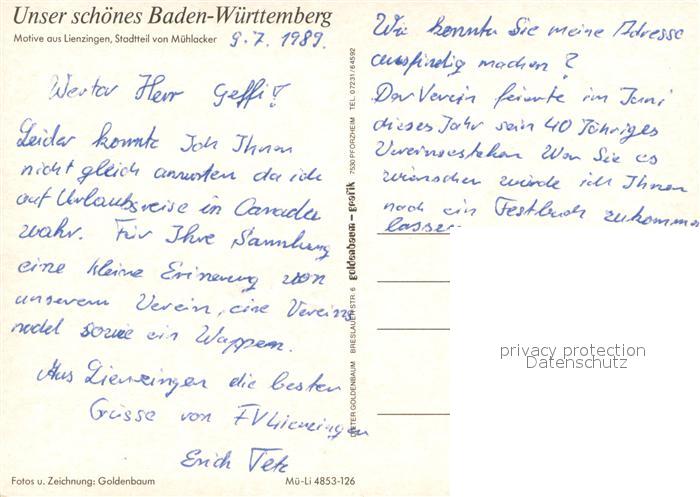 Unser schönes Baden-Württemberg
Motive aus Lienzingen, Stadtteil von Mühlacker
9.7.1989.
Werter Herr Geffi!
Leider konnte Ich Ihnen
nicht gleich anworten da ich
auf Urlaubsreise in Canada
wahr. Für Ihre Sammlung
eine kleine Erinerung von
unserem Verein, eine Vereins
nadel sowie ein Wappen.
Aus Lienzingen die besten
Grüsse von FV Lienzingen
Erich
Fotos u. Zeichnung: Goldenbaum
Mü-Li 4853-126
DIETER GOLDENBAUM BRESLAUERSTR. 6 goldenbaum-grafik 7530 PFORZHEIM TEL. 07231/64592
Wie konnten Sie meine Adresse
ausfindig machen?
Der Verein feierte im Juni
dieses Jahr sein 40 Jähriges
Vereinsbestehen Wen Sie es
wünschen würde ich Ihnen
noch ein Festbuch zukommen
lassen.
privacy protection
Datenschutz